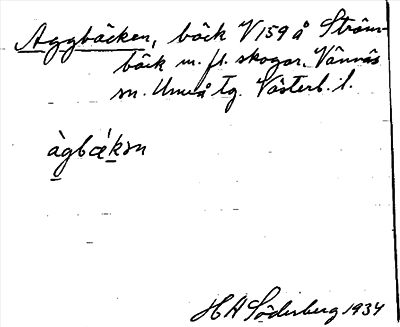 Aggbäcken, bäck V159 å Ström-
bäck m. fl. skogar, Vännäs
sn. Umeå tg. Västerb. l.
àgbǽkən
H A Söderberg 1934